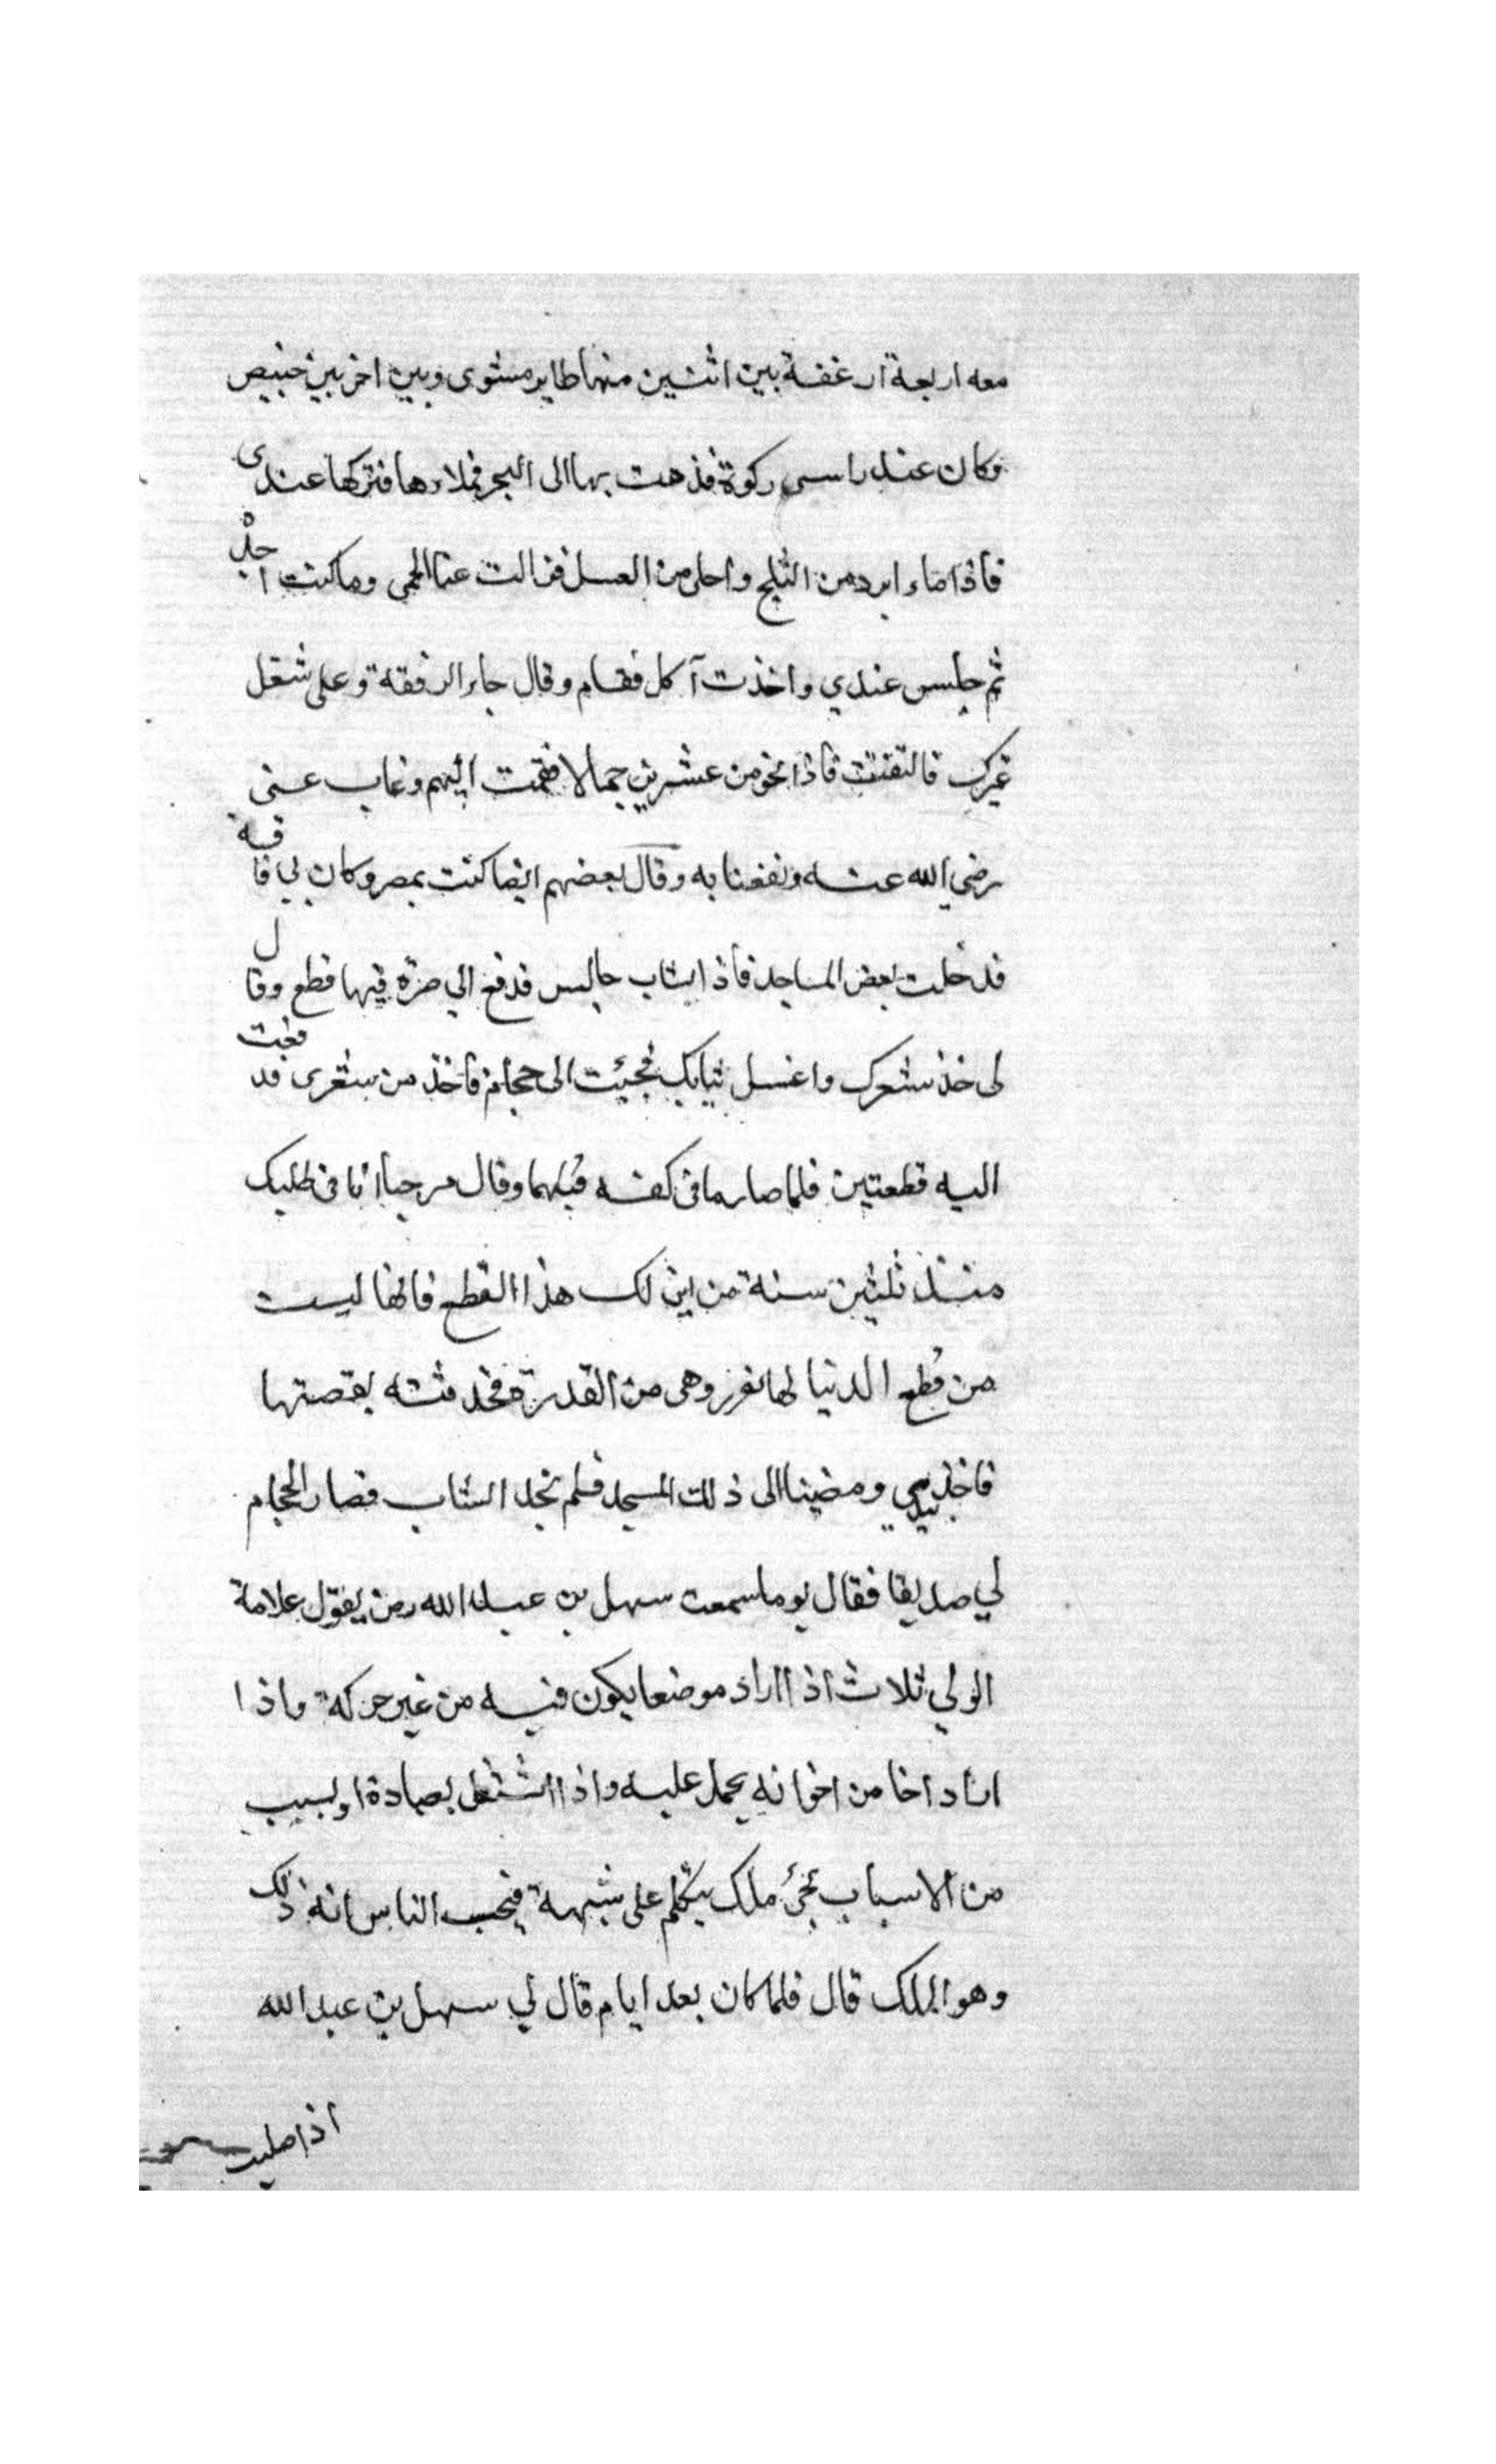 معه اربعة ارغفة بين اثنين منها طاير مشوى وبين اخريين خبيص
وكان عند راسى ركوة فذهت بها الى البحر فملاءها فتركها عندى
فاذا ماء ابرد من الثلج واحلى من العسل فزالت عنا الحمى وما كنت اجد
ثم جلس عندي واخذت آكل فقام وقال جاء الرفقة وعلى شغل
غيرك فالتفتت فاذا نحو من عشرين جمالا فقمت اليهم وغاب عنى
رضي الله عنه ونفعنا به وقال بعضهم ايضا كنت بمصر وكان لي فاقة
فدخلت بعض المساجد فاذا بشاب جالس فدفع الي صرة فيها قطع وقال
لى خذ شعرك واغسل ثيابك فجيئت الى حجام فاخذ من شعرى فدفعت
اليه قطعتين فلما صار ما فى كفه قبلهما وقال مرحبا انا فى طلبك
منذ ثلثين سنة من اين لك هذا القطع فانها ليست
من قطع الدنيا لها نور وهى من القدرة فحدثته بقصتها
فاخذ بيدي ومضينا الى ذلك المسجد فلم نجد الشاب فصار الحجام
لي صديقا فقال يوما سمعت سهل بن عبد الله رضى يقول علامة
الولي ثلاث اذا اراد موضعا يكون فيه من غير حركة واذا
اراد اخا من اخوانه يحمل عليه واذا اشتغل بعبادة او بسبب
من الاسباب يجئ ملك يتكلم على شبهه فيحسب الناس انه ذلك
وهو الملك قال فلما كان بعد ايام قال لي سهل بن عبد الله
اذا صليت